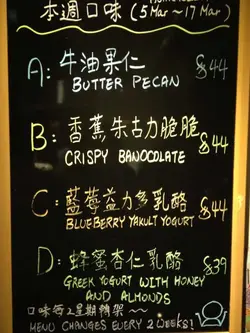 本週口味 (5 Mar ~ 17 Mar)
A: 牛油果仁 $44
BUTTER PECAN
B: 香蕉朱古力脆脆 $44
CRISPY BANOCOLATE
C: 藍莓益力多乳酪 $44
BLUEBERRY YAKULT YOGURT
D: 蜂蜜杏仁乳酪 $39
GREEK YOGURT WITH HONEY
AND ALMONDS
口味每2星期轉架~~
MENU CHANGES EVERY 2 WEEKS!